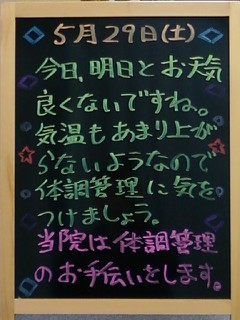 5月29日(土)
今日、明日とお天気
良くないですね。
気温もあまり上が
らないようなので
体調管理に気を
つけましょう。
当院は体調管理
のお手伝いをします。